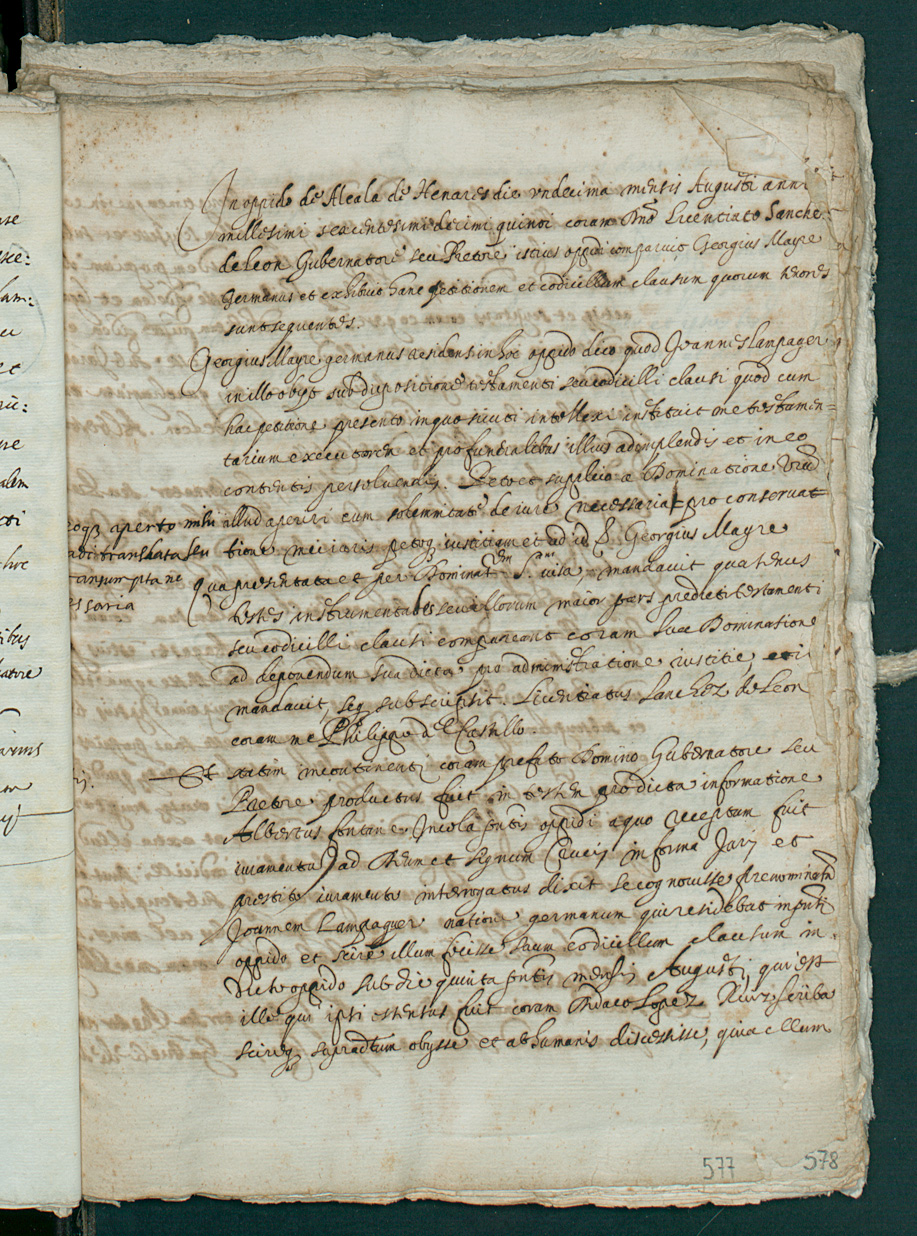 In oppido de Alcala de Henares die vndecima mensis Augusti anni
millesimi sexcentesimi decimi quinti coram Dno Licentiato Sanchez
de leon Gubernatore seu Pretore istius oppidi comparuit Georgius Mayre
Germanus et exhibuit hanc petitionem et codicillum clausum quorum tenores
sunt sequentes.
Georgius Mayre germanus residens in hoc oppido dico quod Joannes lampager
in illo obyt sub dispositione testamenti seu codicilli clausi quod cum
hac petitione presento in quo sicuti intellexi instituit me testamen=
tarium executorem et pro funeralibus illius adimplendis et in eo
contentis persoluendis. Peto et supplico a Dominatione
illud aperiri cum solemnitate de iure necessaria pro conservat
eoqz aperto mihi
tradi translata seu
transumpta ne
cessaria
tione mei iuris petoqz iustitiam et ad id &. Georgius Mayre
Qua presentata et per Dominat.em S. visa, mandauit quatenus
testes instrumentales seu illorum maior pars predicti testamenti
seu codicilli clausi compareant coram sua Dominatione
ad deponendum sua dicta pro administratione iustitie,
mandauit, seq subscripsit. Licentiatus Sanchez de Leon
coram me Philippo del Castillo.
Et statim incontinenti coram prefato Domino Gubernatore seu
Pretore productus fuit in testem pro dicta informatione
Albertus fontanes Incola pntis oppidi a quo receptum fuit
iuramentu ad Deum et signum Crucis in forma Juris et
prestito iuramento interrogatus dixit se cognouisse prenominatu
Joannem Lampaguer natione germanum qui residebat in pnti
oppido et scire illum fecisse suum codicillum clausum in
Dicto oppido sub die quinta pntis mensis Augusti, qui est
ille qui ipsi ostensus fuit coram Didaco Lopez Ruiz scriba
scireqz supradictum obysse et ab humanis discessisse, quia illum
577
578